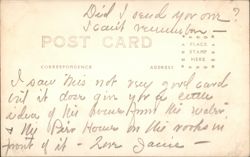 Did I send you one?
I can't remember —
POST CARD
PLACE
STAMP
HERE
CORRESPONDENCE
ADDRESS
I saw this not very good card
but it does give you a little
idea of his house from the water
& the Pier House on the rocks in
front of it — Love